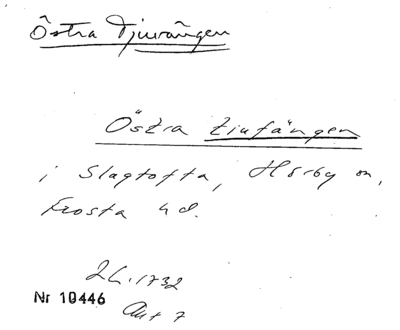 Östra Tjuvängen
Östra tiufängen
i Slagtofta, Hörby sn,
Frosta hd.
LL. 1732
Nr 10446
Akt 7